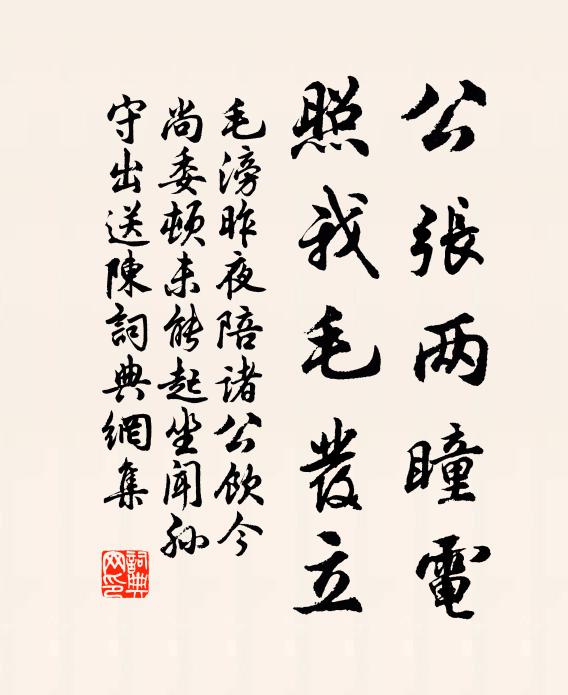 公張两瞳電
照我毛發立
毛滂昨夜陪諸公飲今
尚委頓未能起坐聞孙
守出送陳詞典網集
詞典
网印